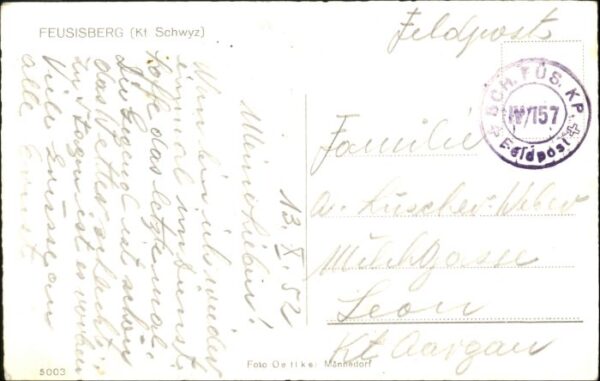 FEUSISBERG (Kt. Schwyz)
13. X. 52
Meine Lieben!
Nun bin ich wieder
einmal im Dienst
hoffe das letztemal.
Die Gegend ist schön
das Wetter schlecht
in Tagen ist es vorbei
Viele Grüsse an
alle Ernst
Feldpost
SCH. FÜS. KP.
IV/157
Feldpost
Familie
A. Lüscher-Weber
Milchgasse
Leon
Kt Aargau
Foto Oetiker Männedorf
5003